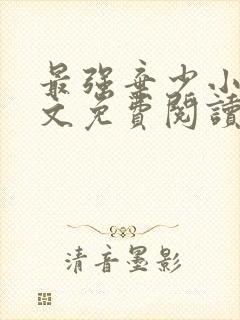 最强弃少小
文免費閱讀
清音墨影